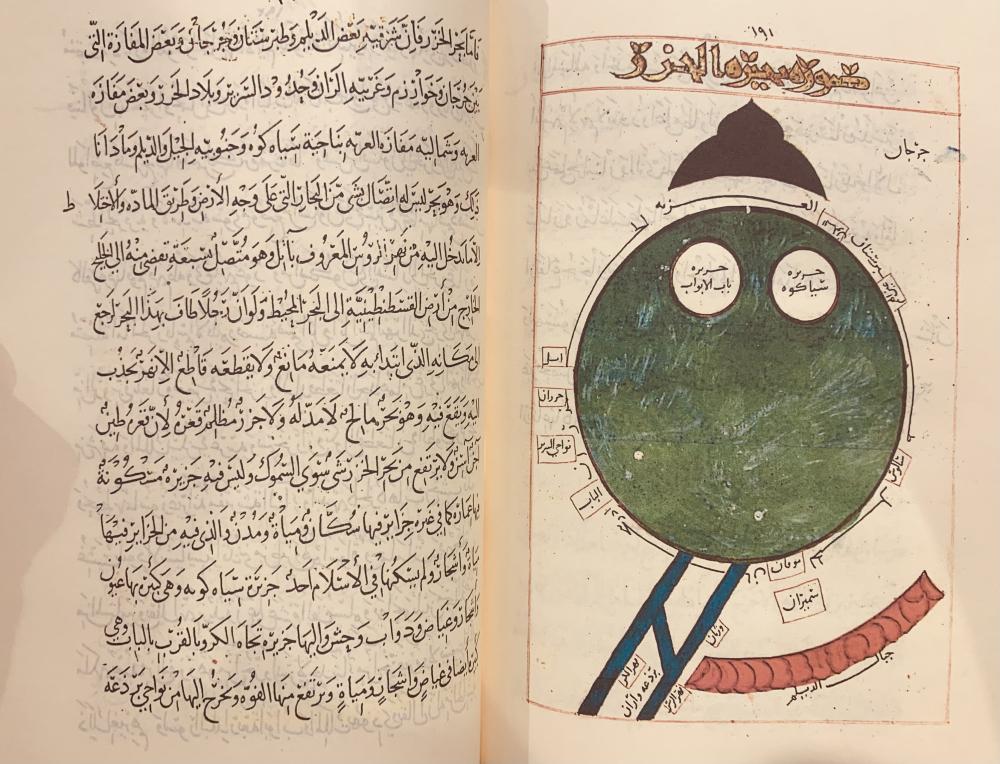 فاما بحر الخزر فان شرقيه بعض الديلم وطبرستان وجرجان وبعض المفازة التى
بين جرجان وخوارزم وغربيه الران وحدود السرير وبلاد الخزر وبعض مفازه
الغزيه وشماليه مفازه الغزيه بناحية سياه كوه وجنوبيه الجيل والديلم وما دانا
ذلك وهو بحر ليس له اتصال بشى من البحار التى على وجه الارض وطريق الماده والاختلاط
الا ما يدخل اليه من نهر الروس المعروف باتل وهو متصل بشعبة تفضى منه الى الخليج
الخارج من ارض القسطنطينية الى البحر المحيط ولو ان رجلا طاف بهذا البحر لرجع
الى مكانه الذى ابتدا به لا يمنعه مانع ولا يقطعه قاطع الا نهر
اليه ويقع فيه وهو بحر مالح لا مد له ولا جزر مظلم قعره لان قعره طين
ولا يرتفع من بحر الخزر شى سوى السموك وليس فيه جزيرة مسكونة
فيها عمارة كما فى غيره جزاير فيها سكان ومياه ومدن والذى فيه من الجزاير فيها
مياه واشجار ولم يسكنها فى الاسلام احد جزيرة سياه كويه وهى كبيرة بها عيون
واشجار وغياض ودواب وحش واليها جزيرة تجاه الكر وبالقرب بالباب وهى
كبيرة ايضا وغياض واشجار ومياه ويرتفع منها الفوه ويخرج اليها من نواحى برذعة
١٩١
صورة بحيرة الخزر
جرجان
الغزيه
جزيره
سياكوه
جزيره
باب الابواب
نواحى السرير
الباب
شالوس
موقان
ورثان
نهر الكر
برذعه واران
جبال
الديلم